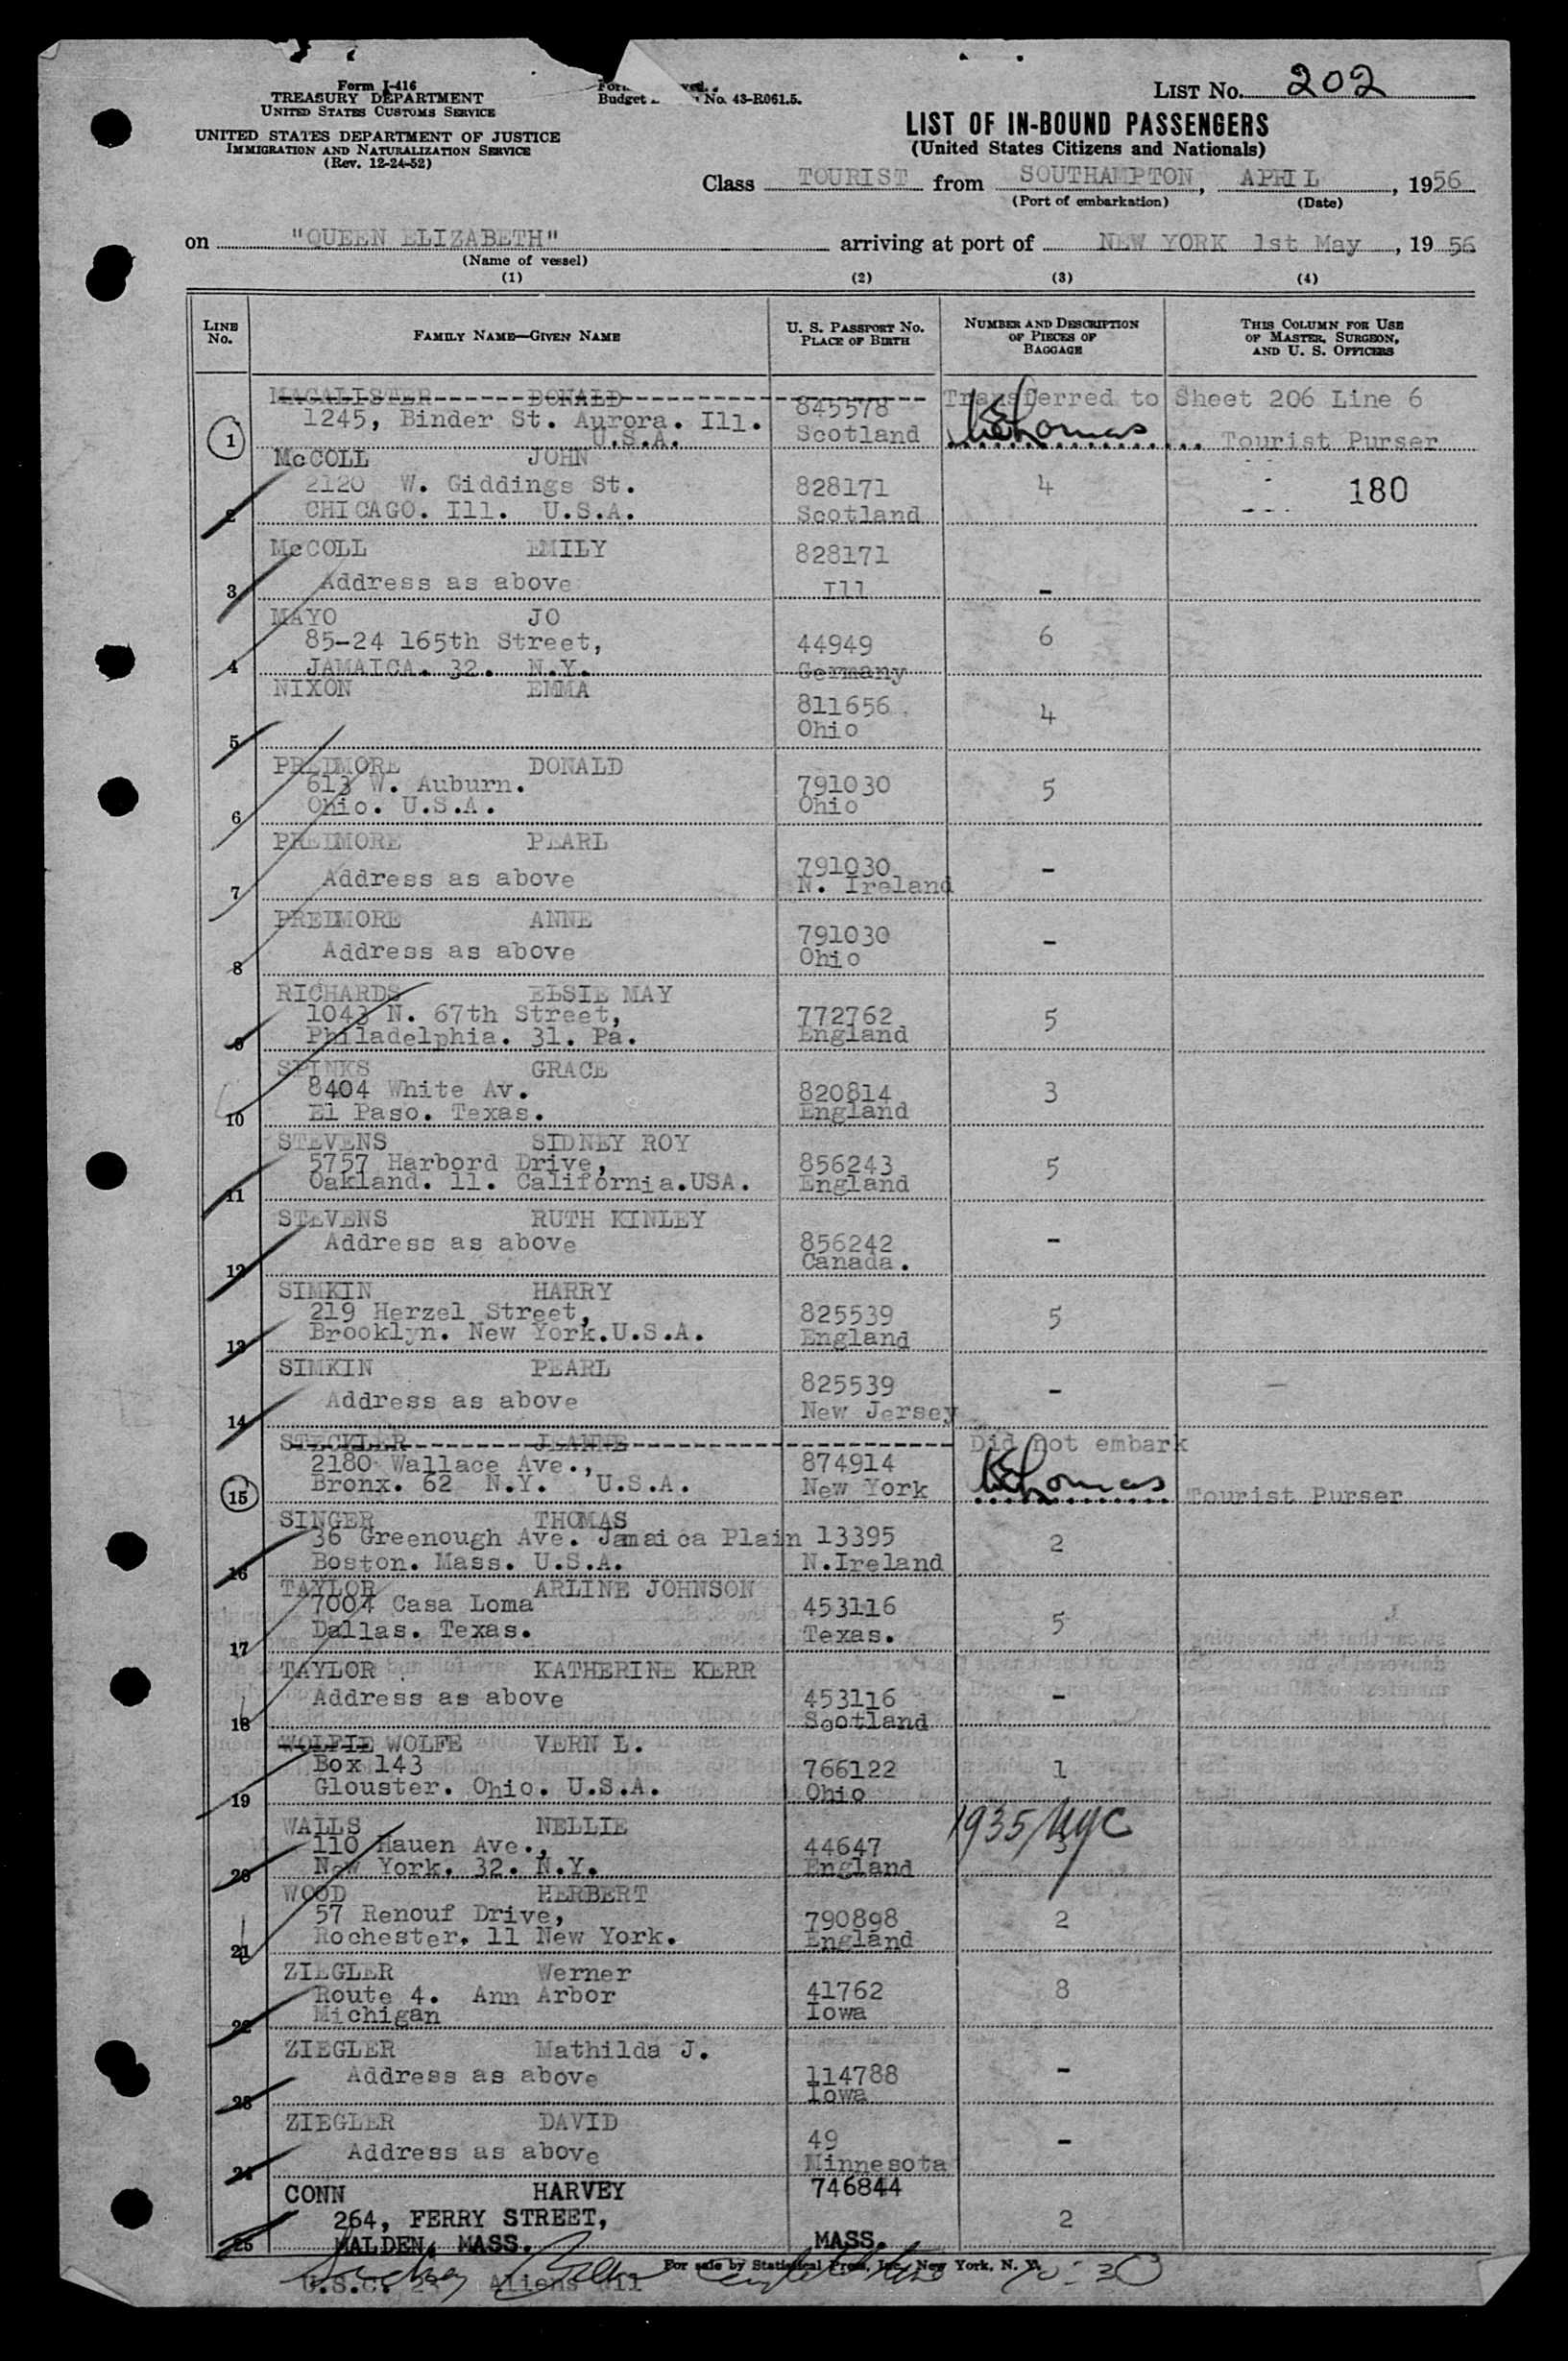 Form I-416
TREASURY DEPARTMENT
UNITED STATES CUSTOMS SERVICE
UNITED STATES DEPARTMENT OF JUSTICE
IMMIGRATION AND NATURALIZATION SERVICE
(Rev. 12-24-52)
Budget No. 43-R061.5.
LIST No. 202
LIST OF IN-BOUND PASSENGERS
(United States Citizens and Nationals)
Class TOURIST from SOUTHAMPTON, APRIL, 1956
(Port of embarkation) (Date)
on "QUEEN ELIZABETH" arriving at port of NEW YORK 1st May, 1956
(Name of vessel)
(1) (2) (3) (4)
LINE No. FAMILY NAME—GIVEN NAME U. S. PASSPORT No. PLACE OF BIRTH NUMBER AND DESCRIPTION OF PIECES OF BAGGAGE THIS COLUMN FOR USE OF MASTER, SURGEON, AND U. S. OFFICERS
MACALISTER DONALD 845578 Transferred to Sheet 206 Line 6
1245, Binder St. Aurora. Ill.
1 U.S.A. Scotland Tourist Purser
McCOLL JOHN
2120 W. Giddings St. 828171 4 180
2 CHICAGO. Ill. U.S.A. Scotland
McCOLL EMILY 828171
3 Address as above Ill -
MAYO JO
85-24 165th Street, 44949 6
4 JAMAICA. 32. N.Y. Germany
NIXON EMMA
811656 4
5 Ohio
PREDMORE DONALD
613 W. Auburn. 791030 5
6 Ohio. U.S.A. Ohio
PREDMORE PEARL
791030 -
7 Address as above N. Ireland
PREDMORE ANNE
791030 -
8 Address as above Ohio
RICHARDS ELSIE MAY
1043 N. 67th Street, 772762 5
9 Philadelphia. 31. Pa. England
SPINKS GRACE
8404 White Av. 820814 3
10 El Paso. Texas. England
STEVENS SIDNEY ROY
5757 Harbord Drive, 856243 5
11 Oakland. 11. California.USA. England
STEVENS RUTH KINLEY
Address as above 856242 -
12 Canada.
SIMKIN HARRY
219 Herzel Street, 825539 5
13 Brooklyn. New York.U.S.A. England
SIMKIN PEARL
825539 -
14 Address as above New Jersey
STECKLER JEANNE Did not embark
2180 Wallace Ave., 874914
15 Bronx. 62 N.Y. U.S.A. New York Tourist Purser
SINGER THOMAS
36 Greenough Ave. Jamaica Plain 13395 2
16 Boston. Mass. U.S.A. N.Ireland
TAYLOR ARLINE JOHNSON
7004 Casa Loma 453116 5
17 Dallas. Texas. Texas.
TAYLOR KATHERINE KERR
Address as above 453116 -
18 Scotland
WOLFIE WOLFE VERN L.
Box 143 766122 1
19 Glouster. Ohio. U.S.A. Ohio
WALLS NELLIE 1935/NYC
110 Hauen Ave., 44647
20 New York. 32. N.Y. England
WOOD HERBERT
57 Renouf Drive, 790898 2
21 Rochester. 11 New York. England
ZIEGLER Werner
Route 4. Ann Arbor 41762 8
22 Michigan Iowa
ZIEGLER Mathilda J.
Address as above 114788 -
23 Iowa
ZIEGLER DAVID
49 -
24 Address as above Minnesota
CONN HARVEY 746844
264, FERRY STREET, 2
25 MALDEN, MASS. MASS.
For sale by Statistical Press, Inc., New York, N. Y.
U.S.C. Aliens